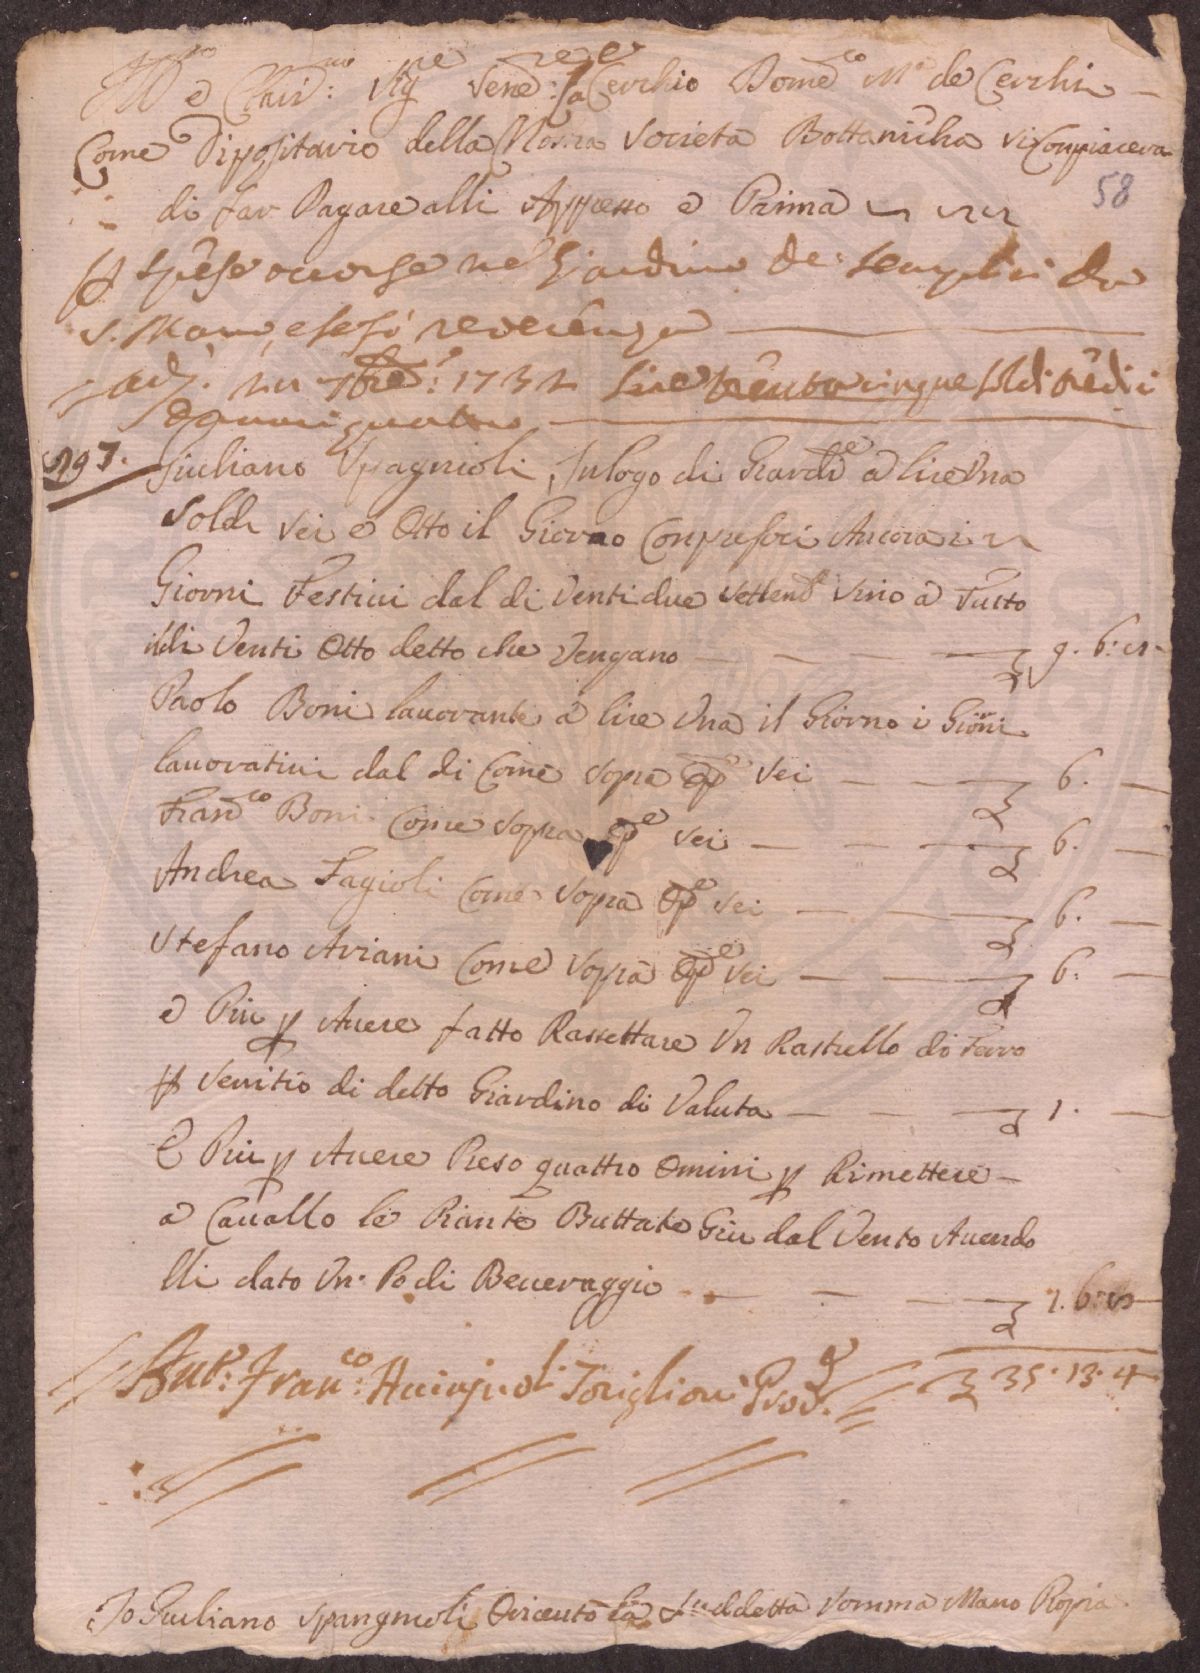 Ill.mo e Clari.mo Sig.re Sene.re Cerchio Dome.co M.a de Cerchi
Come Dipositario della Nostra Societa Bottanicha si Conpiacera
58
di far Pagare alli Appresso e Prima
p spese occorse nel Giardino de Senplici da
S. Marco, e le fò reverenza
adj. 7bre: 1732 Lire trenta cinque soldi tredici
danari quatro
197. Giuliano Spagnioli, In logo di Giardi.e a lire Una
Soldi Sei e Otto il Giorno Conpresoci Ancora i
Giorni Festivi dal di Venti due Settenb.e Sino a Tutto
il di Venti Otto detto che Vengano 9. 6:
Paolo Boni lavorante a lire Una il Giorno i Giorni
lavorativi dal di Come Sopra Op.e Sei 6.
Fran.co Boni Come Sopra Op.e Sei 6.
Andrea Fagioli Come Sopra Op.e Sei 6.
Stefano Aviani Come Sopra Op.e Sei 6.
e Piu p Avere fatto Rassettare Un Rastrello di Ferro
p Servitio di detto Giardino di Valuta 1.
E Piu p Avere Preso quattro Omini p Rimettere
a Cavallo le Piante Buttate Giu dal Vento Avendo
lli dato Un Po di Beveraggio 1. 6:
35. 13. 4
Ant.o: Fran.co: Toniglioni Prov.e
Io Giuliano Spangnioli O riceuto la Suddetta Somma Mano Propia